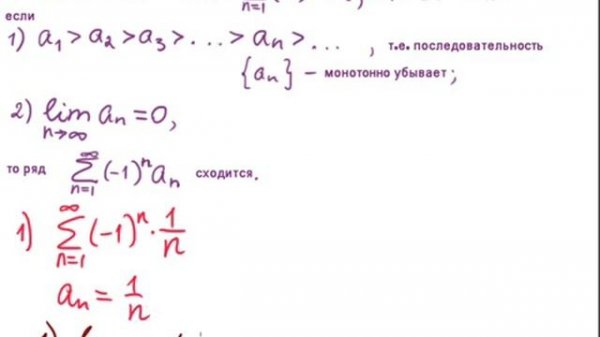 n=1
если
1) a₁ > a₂ > a₃ > ... > aₙ > ... , т.е. последовательность
{aₙ} – монотонно убывает;
2) lim aₙ = 0,
n→∞
то ряд ∞∑n=1 (-1)ⁿ aₙ сходится.
1) ∞∑n=1 (-1)ⁿ · 1/n
aₙ = 1/n